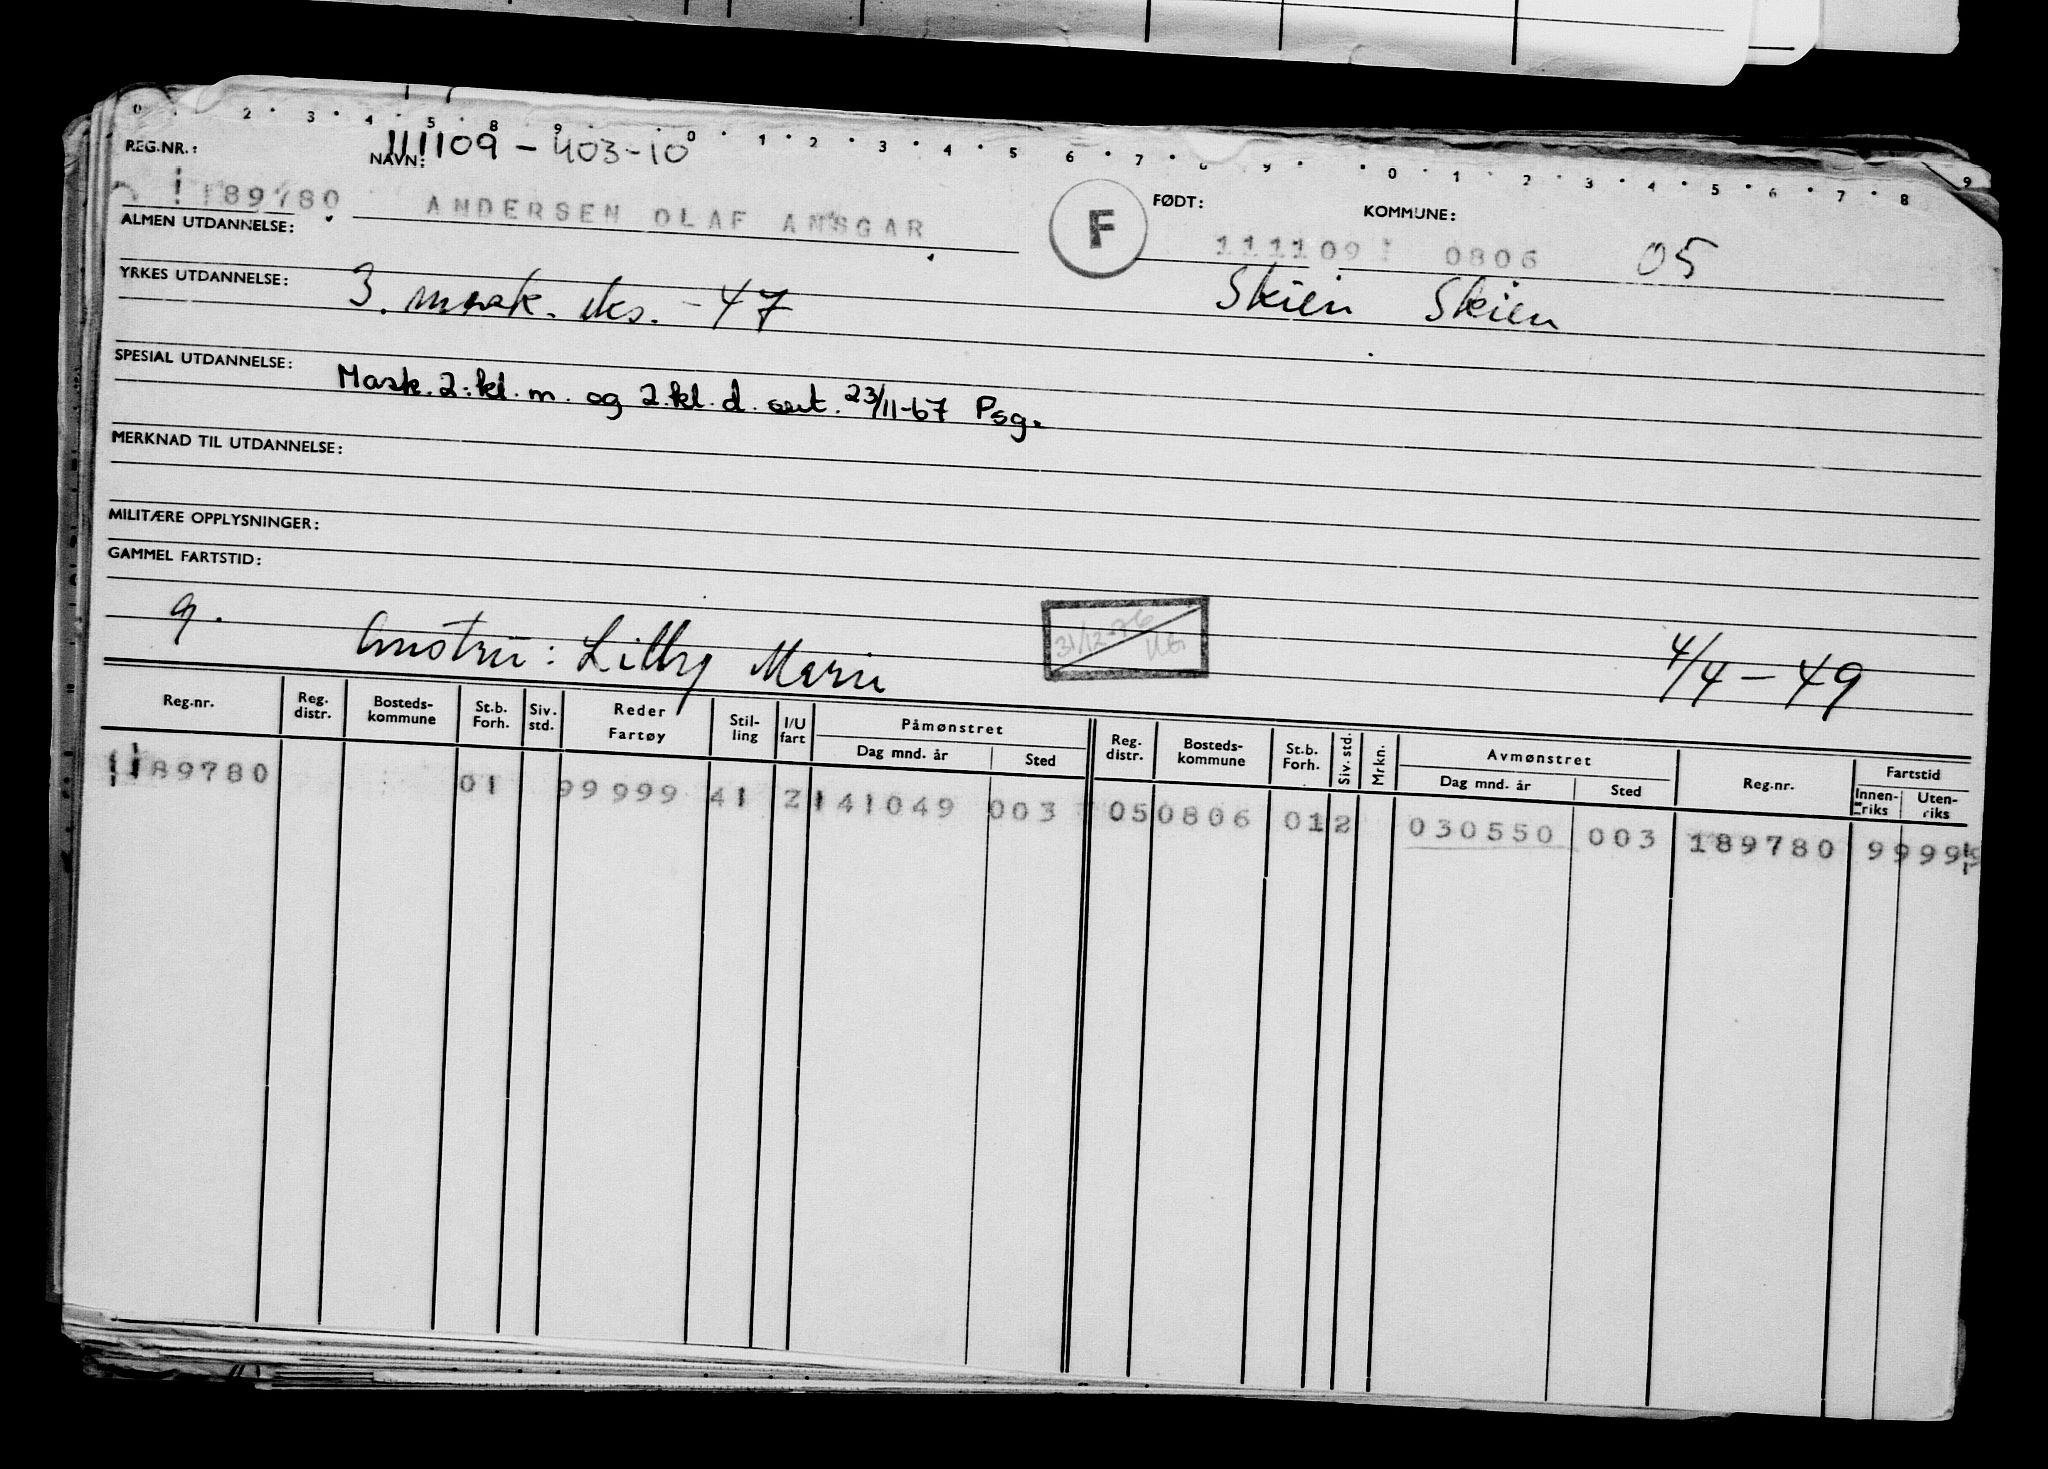 0 2 3 4 5 8 9 0 1 2 3 4 5 6 7 8 9 0 1 2 3 4 5 6 7 8 9
REG.NR.: NAVN: 111109 - 403-10
189780 ANDERSEN OLAF ANSGAR F FØDT: KOMMUNE:
111109 0806 05
ALMEN UTDANNELSE:
YRKES UTDANNELSE: 3. mask. eks. -47 Skien Skien
SPESIAL UTDANNELSE: Mask. 2. kl. m. og 2. kl. d. sert. 23/11-67 Psg.
MERKNAD TIL UTDANNELSE:
MILITÆRE OPPLYSNINGER:
GAMMEL FARTSTID:
g. Gustru: Lilly Marie 31/12-76 4/4-49
Reg.nr. Reg. distr. Bosteds-kommune St.b. Forh. Siv. std. Reder Fartøy Stil-ling I/U fart Påmønstret Dag mnd. år Sted Reg. distr. Bosteds-kommune St.b. Forh. Siv. std. Mrkn. Avmønstret Dag mnd. år Sted Reg.nr. Fartstid Innen-riks Uten-riks
189780 01 99999 41 2 141049 003 05 0806 01 2 030550 003 189780 99999